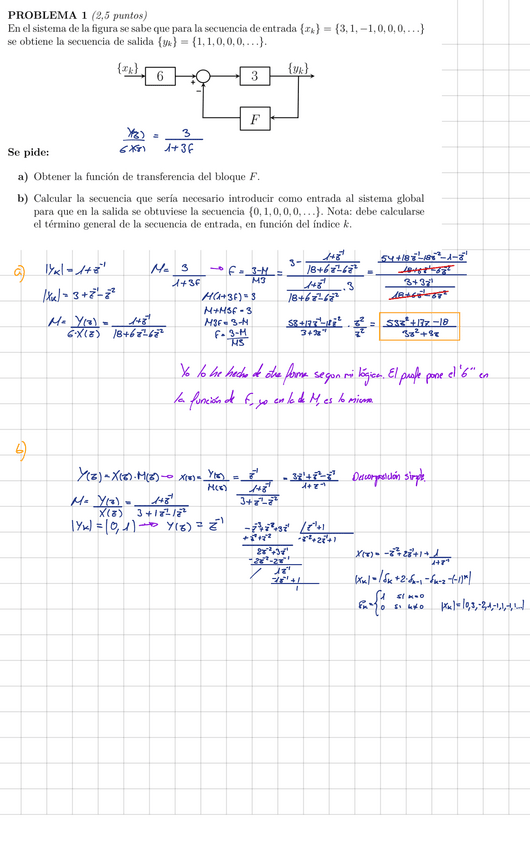 PROBLEMA 1 (2,5 puntos)
En el sistema de la figura se sabe que para la secuencia de entrada {xₖ} = {3, 1, −1, 0, 0, 0, . . .}
se obtiene la secuencia de salida {yₖ} = {1, 1, 0, 0, 0, . . .}.
{xₖ} 6 + − 3 {yₖ}
F
Y(z)/6X(z) = 3/(1+3F)
Se pide:
a) Obtener la función de transferencia del bloque F.
b) Calcular la secuencia que sería necesario introducir como entrada al sistema global
para que en la salida se obtuviese la secuencia {0, 1, 0, 0, 0, . . .}. Nota: debe calcularse
el término general de la secuencia de entrada, en función del índice k.
a)
|Yₖ| = 1+z⁻¹
|Xₖ| = 3+z⁻¹−z⁻²
M = Y(z)/(6·X(z)) = (1+z⁻¹)/(18+6z⁻¹−6z⁻²)
M = 3/(1+3F) → F = (3−M)/(M3) =
M(1+3F) = 3
M+M3F = 3
M3F = 3−M
F = (3−M)/(M3)
(53z²+17z−18)/(3z²+3z)
Yo lo he hecho de otra forma segun mi lógica. El profe pone el "6" en
la función de F, yo en la de M, es lo mismo
b)
Y(z) = X(z)·M(z) → X(z) = Y(z)/M(z) = z⁻¹/((1+z⁻¹)/(3+z⁻¹−z⁻²)) = (3z⁻¹+z⁻²−z⁻³)/(1+z⁻¹) Descomposición simple.
M = Y(z)/X(z) = (1+z⁻¹)/(3+1z⁻¹−1z⁻²)
|Yₖ| = |0, 1| → Y(z) = z⁻¹
−z⁻³+z⁻²+3z⁻¹ |z⁻¹+1
+z⁻³+z⁻² −z⁻²+2z⁻¹+1
2z⁻²+3z⁻¹
−2z⁻²−2z⁻¹
1z⁻¹